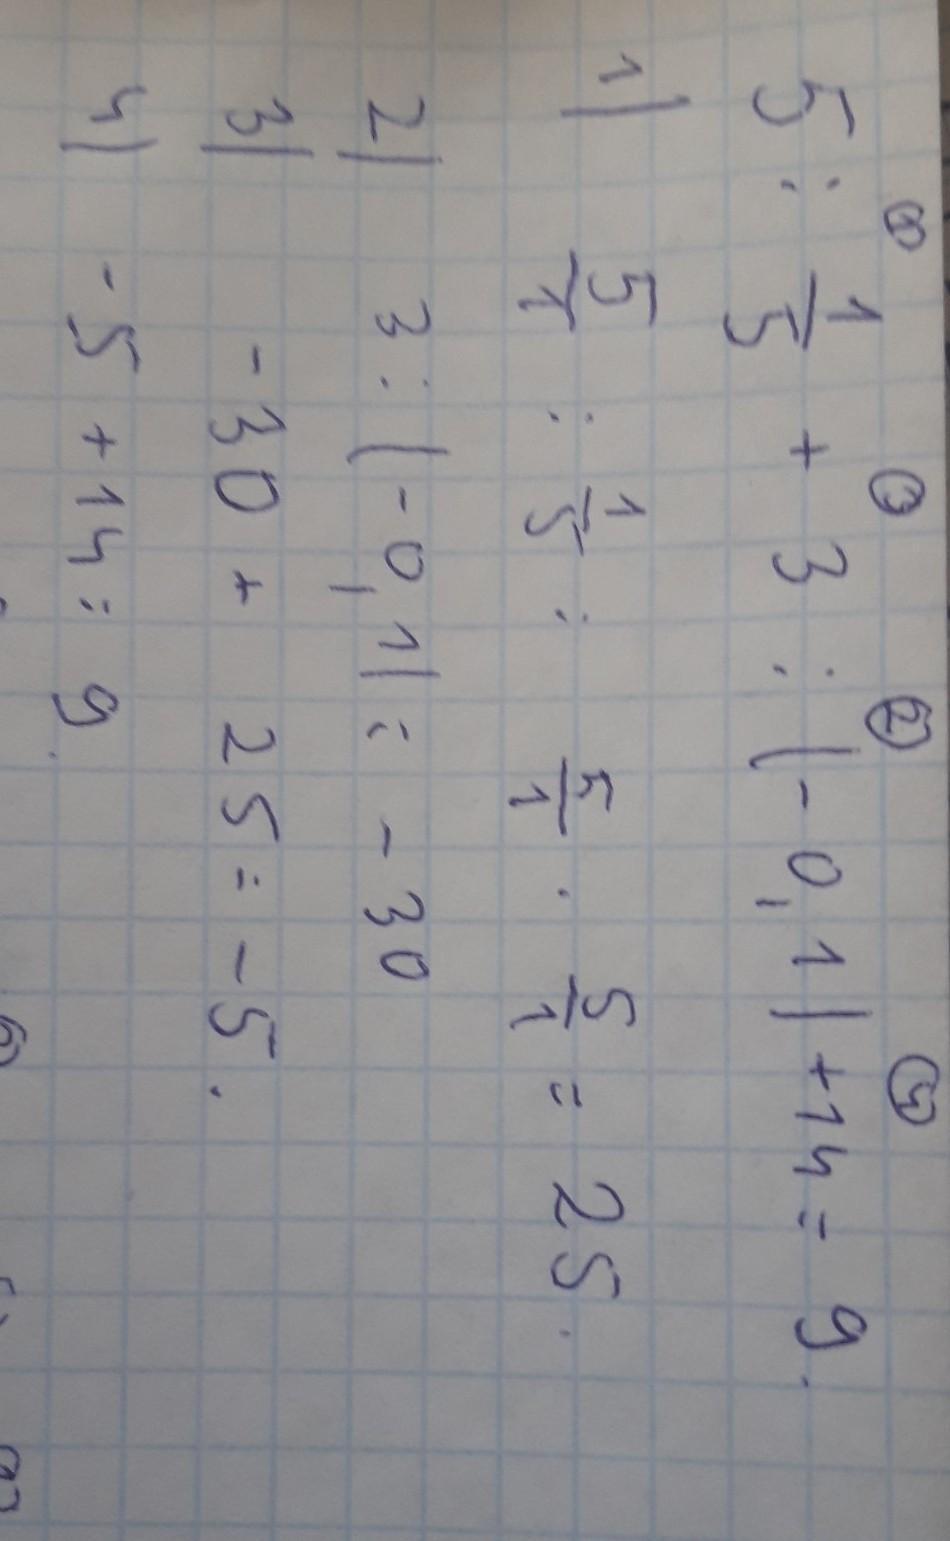 ① ③ ② ④
5 : 1/5 + 3 : (-0,1) + 14 = 9.
1) 5/1 : 1/5 : 5/1 · 5/1 = 25.
2) 3 : (-0,1) = -30
3) -30 + 25 = -5.
4) -5 + 14 = 9.